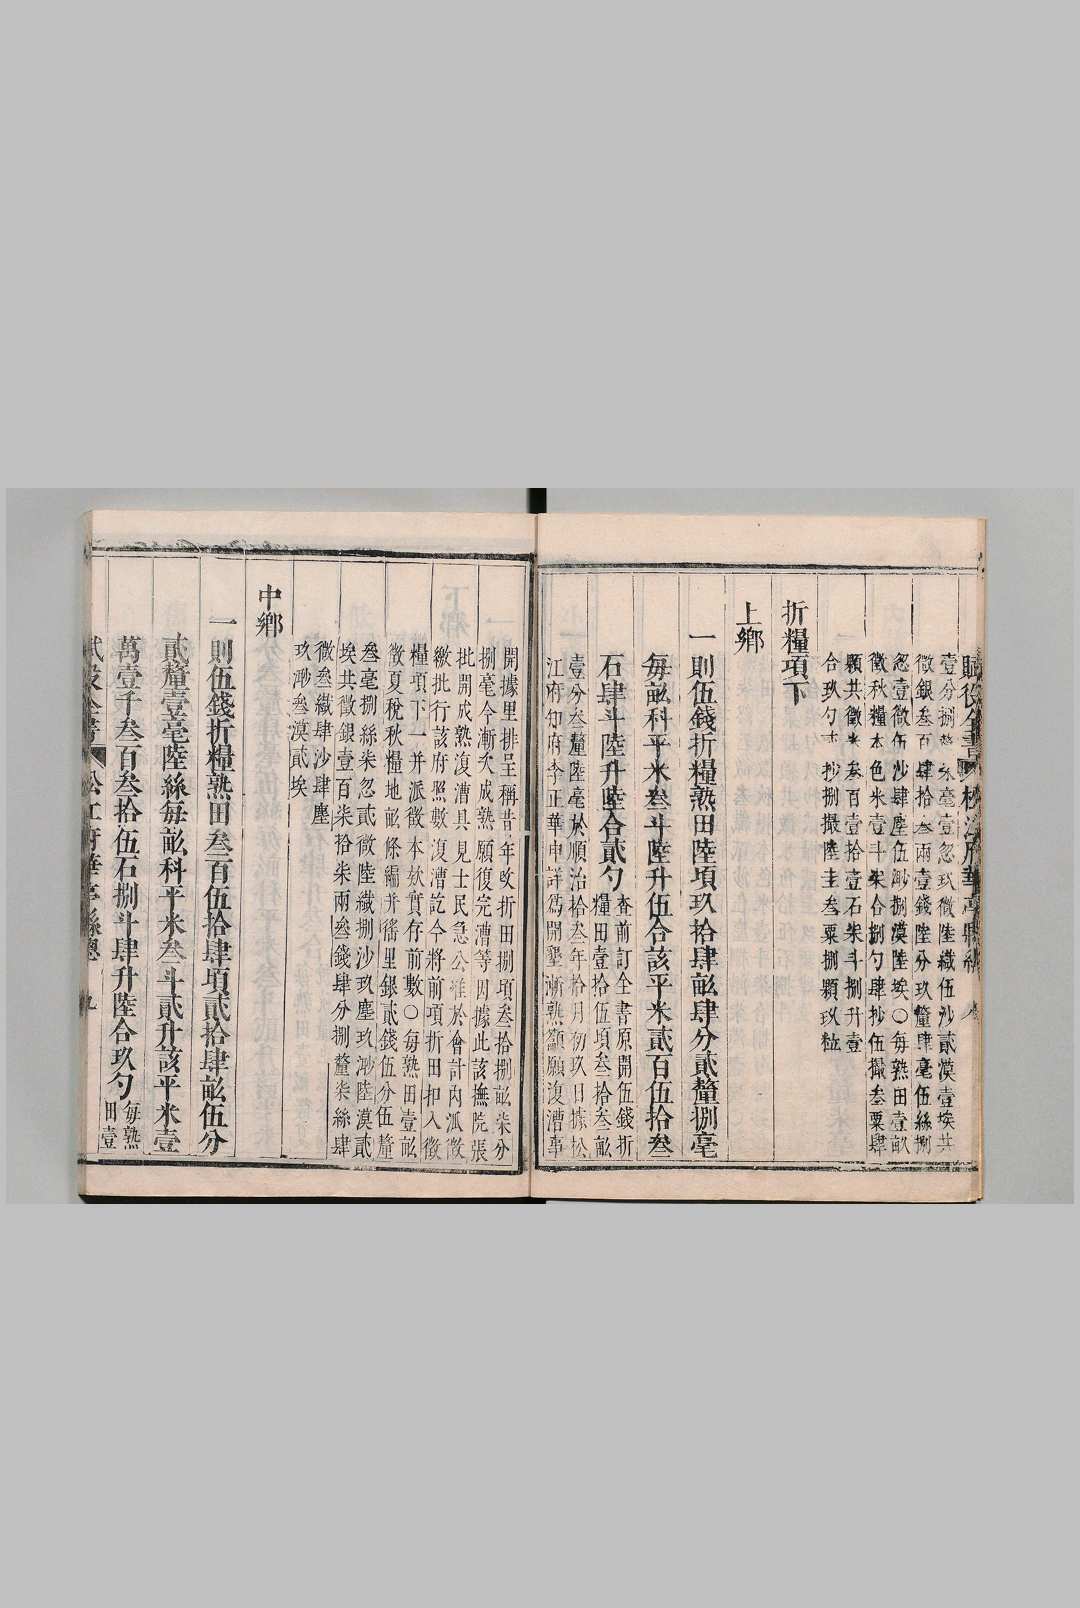 賦役全書 松江府華亭縣總
壹分捌釐柒毫壹忽玖微陸纖伍沙貳漠壹埃共
徵銀叁百肆拾叁兩壹錢陸分玖釐肆毫伍絲捌
忽壹微伍沙肆塵伍渺捌漠陸埃○每熟田壹畝
徵秋糧本色米壹斗柒合捌勺肆抄伍撮叁粟肆
顆共徵米叁百壹拾壹石柒斗捌升壹
合玖勺 抄捌撮陸圭叁粟捌顆玖粒
折糧項下
上鄉
一則伍錢折糧熟田陸項玖拾肆畝肆分貳釐捌毫
每畝科平米叁斗陸升伍合該平米貳百伍拾叁
石肆斗陸升陸合貳勺
查前訂全書原開伍錢折
糧田壹拾伍項叁拾叁畝
壹分叁釐陸毫於順治拾叁年拾月初玖日據松
江府知府李正華申詳爲開墾漸熟籲願復漕事
開據里排呈稱昔年改折田捌項叁拾捌畝柒分
捌毫今漸次成熟願復完漕等因據此該撫院張
批開成熟復漕具見士民急公准於會計內派徵
繳批行該府照數復漕訖今將前項折田扣入徵
糧項下一并派徵本欵實存前數○每熟田壹畝
徵夏稅秋糧地畝條編并徭里銀貳錢伍分伍釐
叁毫捌絲柒忽貳微陸纖捌沙玖塵玖渺陸漠貳
埃共徵銀壹百柒拾柒兩叁錢肆分捌釐柒絲肆
微叁纖肆沙肆塵
玖渺叁漠貳埃
中鄉
一則伍錢折糧熟田叁百伍拾肆項貳拾肆畝伍分
貳釐壹毫陸絲每畝科平米叁斗貳升該平米壹
萬壹千叁百叁拾伍石捌斗肆升陸合玖勺
每熟
田壹
賦役全書 松江府華亭縣總 九